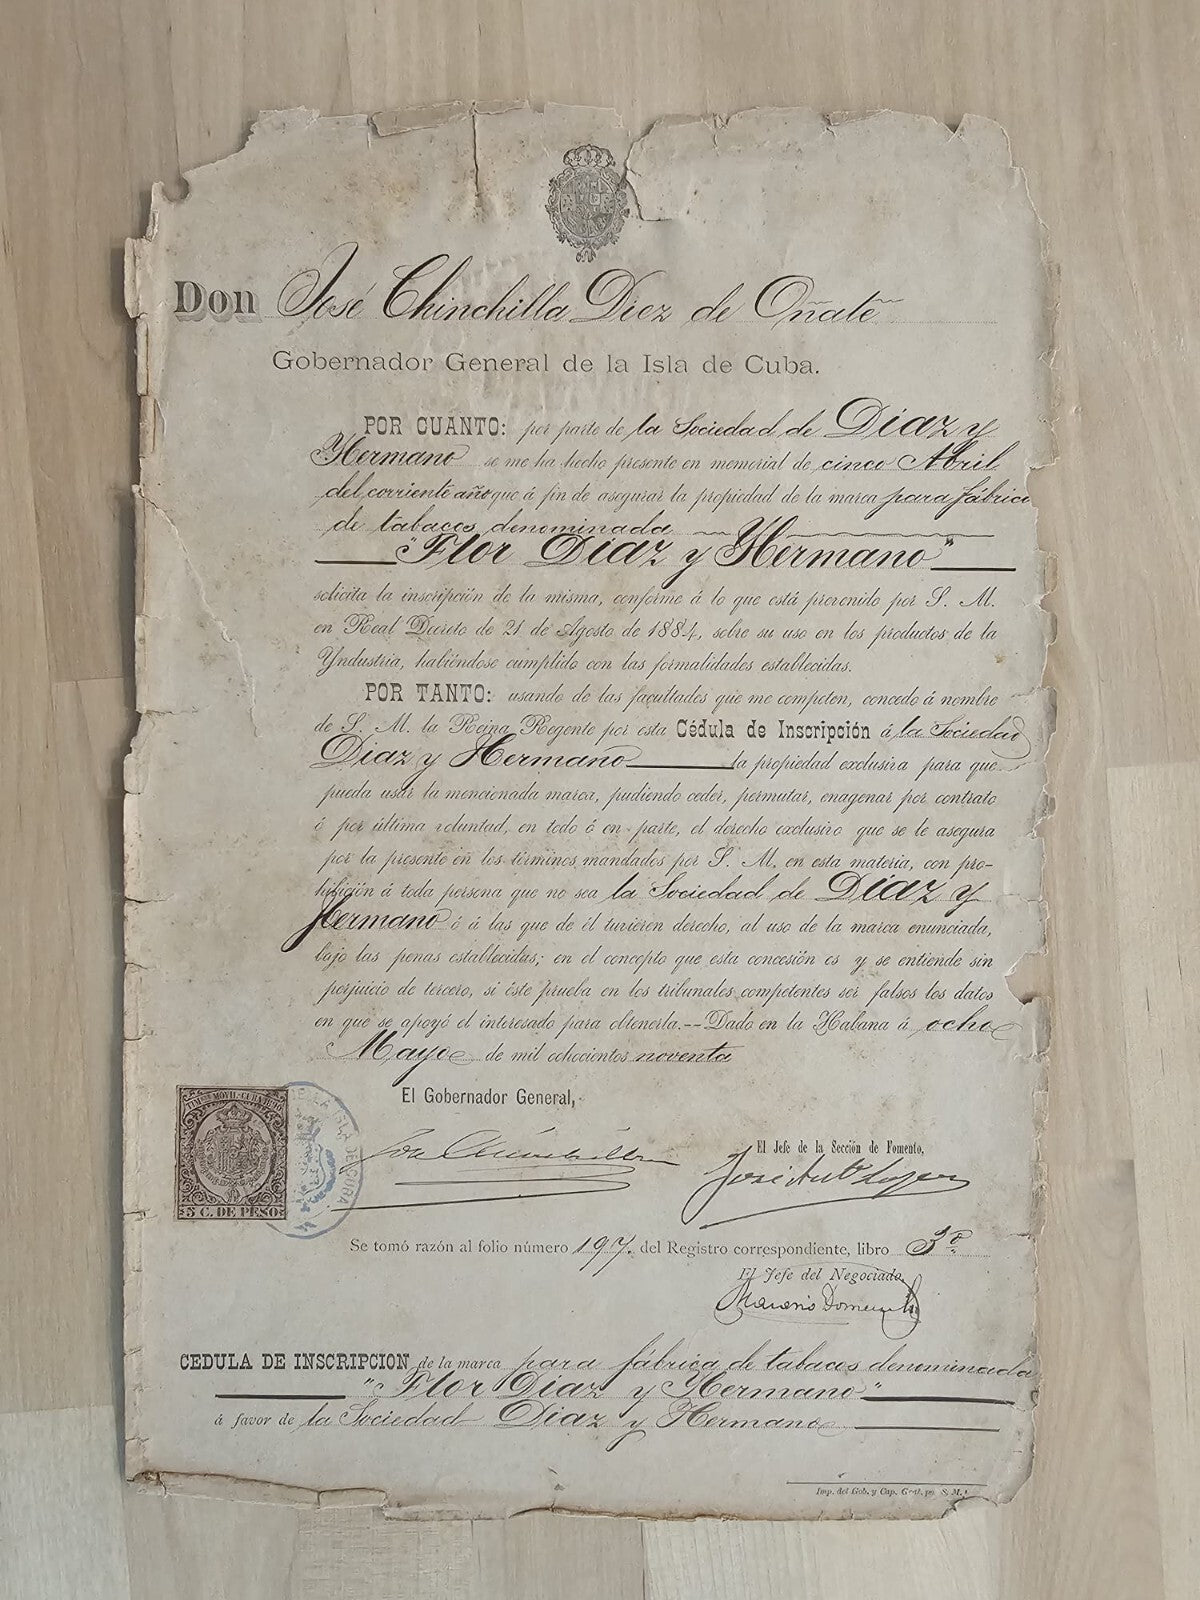 Don José Chinchilla Diez de Oñate
Gobernador General de la Isla de Cuba.
POR CUANTO: por parte de la Sociedad de Diaz y
Hermano se me ha hecho presente en memorial de cinco Abril
del corriente año que á fin de asegurar la propiedad de la marca para fábrica
de tabacos denominada
"Flor Diaz y Hermano"
solicita la inscripción de la misma, conforme á lo que está prevenido por S. M.
en Real Decreto de 21 de Agosto de 1884, sobre su uso en los productos de la
Yndustria, habiéndose cumplido con las formalidades establecidas.
POR TANTO: usando de las facultades que me competen, concedo á nombre
de S. M. la Reina Regente por esta Cédula de Inscripción á la Sociedad
Diaz y Hermano la propiedad exclusiva para que
pueda usar la mencionada marca, pudiendo ceder, permutar, enagenar por contrato
ó por última voluntad, en todo ó en parte, el derecho exclusivo que se le asegura
por la presente en los términos mandados por S. M. en esta materia, con pro-
hibición á toda persona que no sea la Sociedad de Diaz y
Hermano ó á las que de él tuvieren derecho, al uso de la marca enunciada,
bajo las penas establecidas; en el concepto que esta concesión es y se entiende sin
perjuicio de tercero, si éste prueba en los tribunales competentes ser falsos los datos
en que se apoyó el interesado para obtenerla.--Dado en la Habana á ocho
Mayo de mil ochocientos noventa
El Gobernador General,
El Jefe de la Sección de Fomento,
TIMBRE MÓVIL-CUBA
5 C. DE PESO
Se tomó razón al folio número 197. del Registro correspondiente, libro 3º
El Jefe del Negociado,
CEDULA DE INSCRIPCION de la marca para fábrica de tabacos denominada
"Flor Diaz y Hermano"
á favor de la Sociedad Diaz y Hermano
Imp. del Gob. y Cap. Gral. por S. M.